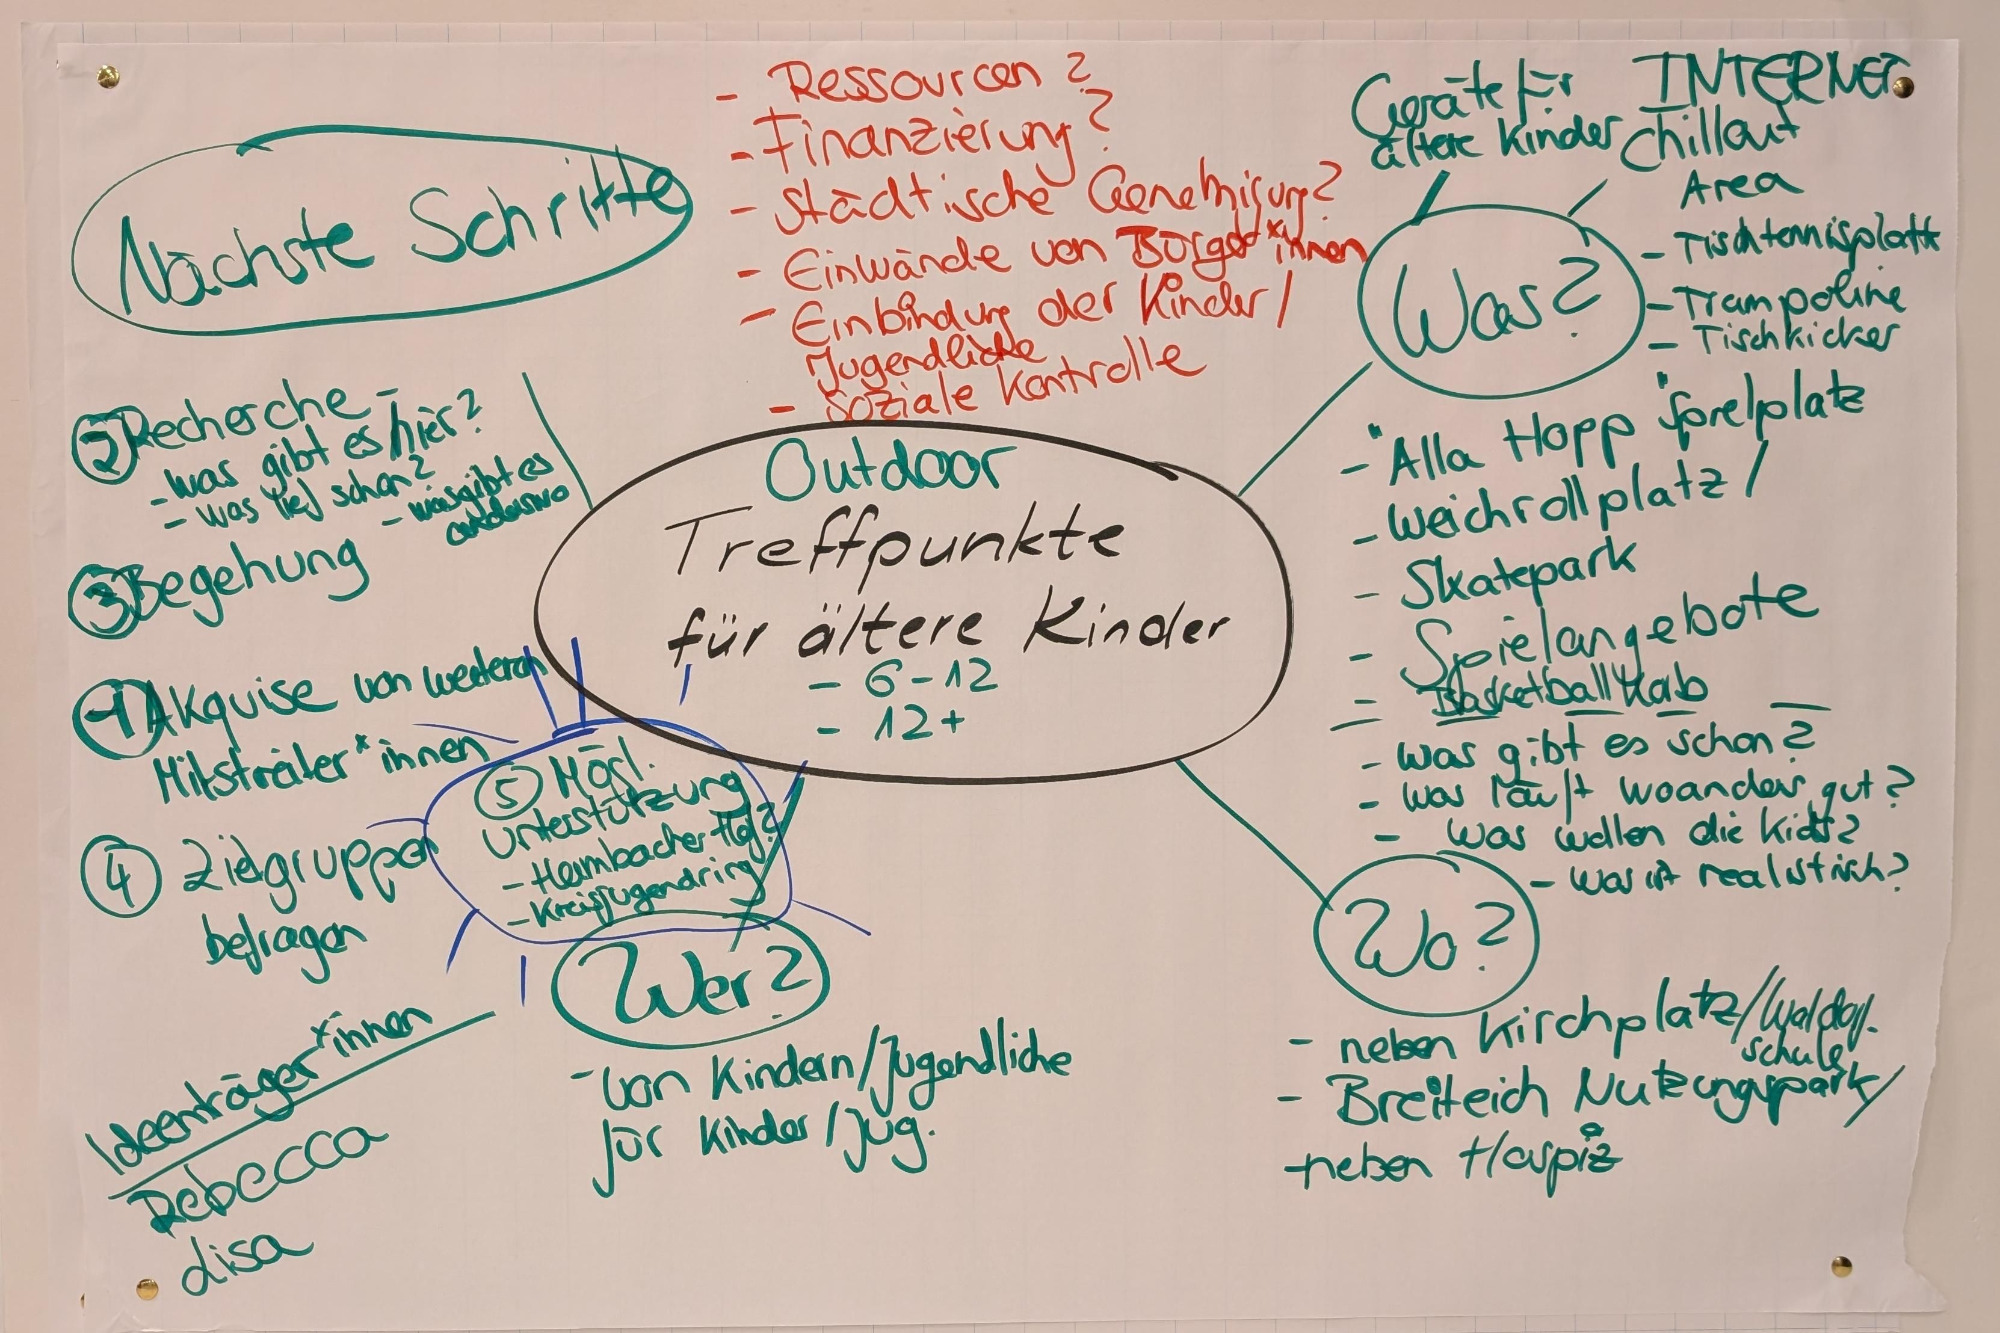 Nächste Schritte
- Ressourcen?
- Finanzierung?
- städtische Genehmigung?
- Einwände von Bürger*innen
- Einbindung der Kinder/
Jugendliche
- soziale Kontrolle
Geräte für
ältere Kinder
INTERNET
Chillout
Area
- Tischtennisplatte
- Trampoline
- Tischkicker
Was?
- "Alla Hopp" Spielplatz
- Weichrollplatz/
- Skatepark
- Spielangebote
- Basketballkorb
- was gibt es schon?
- was läuft woanders gut?
- was wollen die Kids?
- was ist realistisch?
Outdoor
Treffpunkte
für ältere Kinder
- 6-12
- 12+
② Recherche -
- was gibt es hier?
- was lief schon?
- was gibt es
anderswo
③ Begehung
① Akquise von weiteren
Mitstreiter*innen
④ Zielgruppen
befragen
⑤ Mögl.
Unterstützung
- Heimbacher Hof?
- Kreisjugendring
Wer?
- von Kindern/Jugendliche
für Kinder/Jug.
Wo?
- neben Kirchplatz/Waldorf-
schule
- Breiteich Nutzungspark/
- neben Hospiz
Ideenträger*innen
Rebecca
Lisa